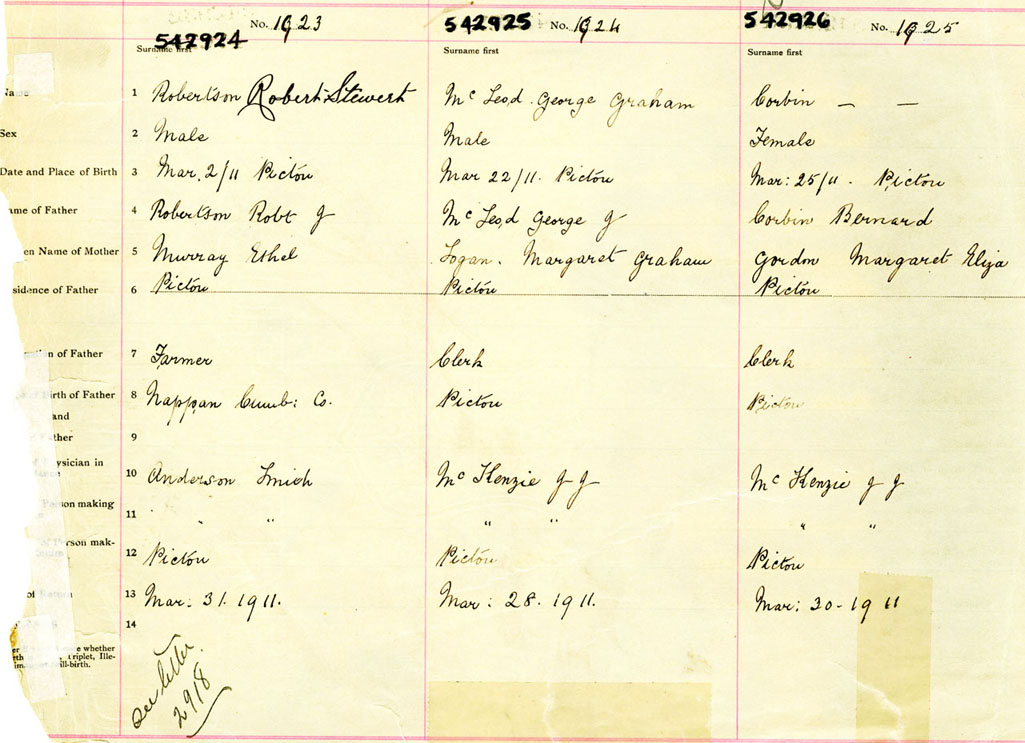 542924 No. 1923 542925 No. 1924 542926 No. 1925
Surname first Surname first Surname first
Name 1 Robertson Robert Stewert Mc Leod George Graham Corbin — —
Sex 2 Male Male Female
Date and Place of Birth 3 Mar. 2/11 Pictou Mar 22/11. Pictou Mar: 25/11 - Pictou
ame of Father 4 Robertson Robt J Mc Leod George J Corbin Bernard
en Name of Mother 5 Murray Ethel Logan. Margaret Graham Gordon Margaret Eliza
sidence of Father 6 Pictou Pictou Pictou
ation of Father 7 Farmer Clerk Clerk
Birth of Father 8 Nappan Cumb: Co. Pictou Pictou
and
ther 9
ysician in 10 Anderson Smith Mc Kenzie J J Mc Kenzie J J
Person making
11 " " " " " "
Person mak-
12 Pictou Pictou Pictou
of 13 Mar: 31. 1911. Mar: 28. 1911. Mar: 30-1911
14
whether
Triplet, Ille-
ill-birth.
See letter
2918